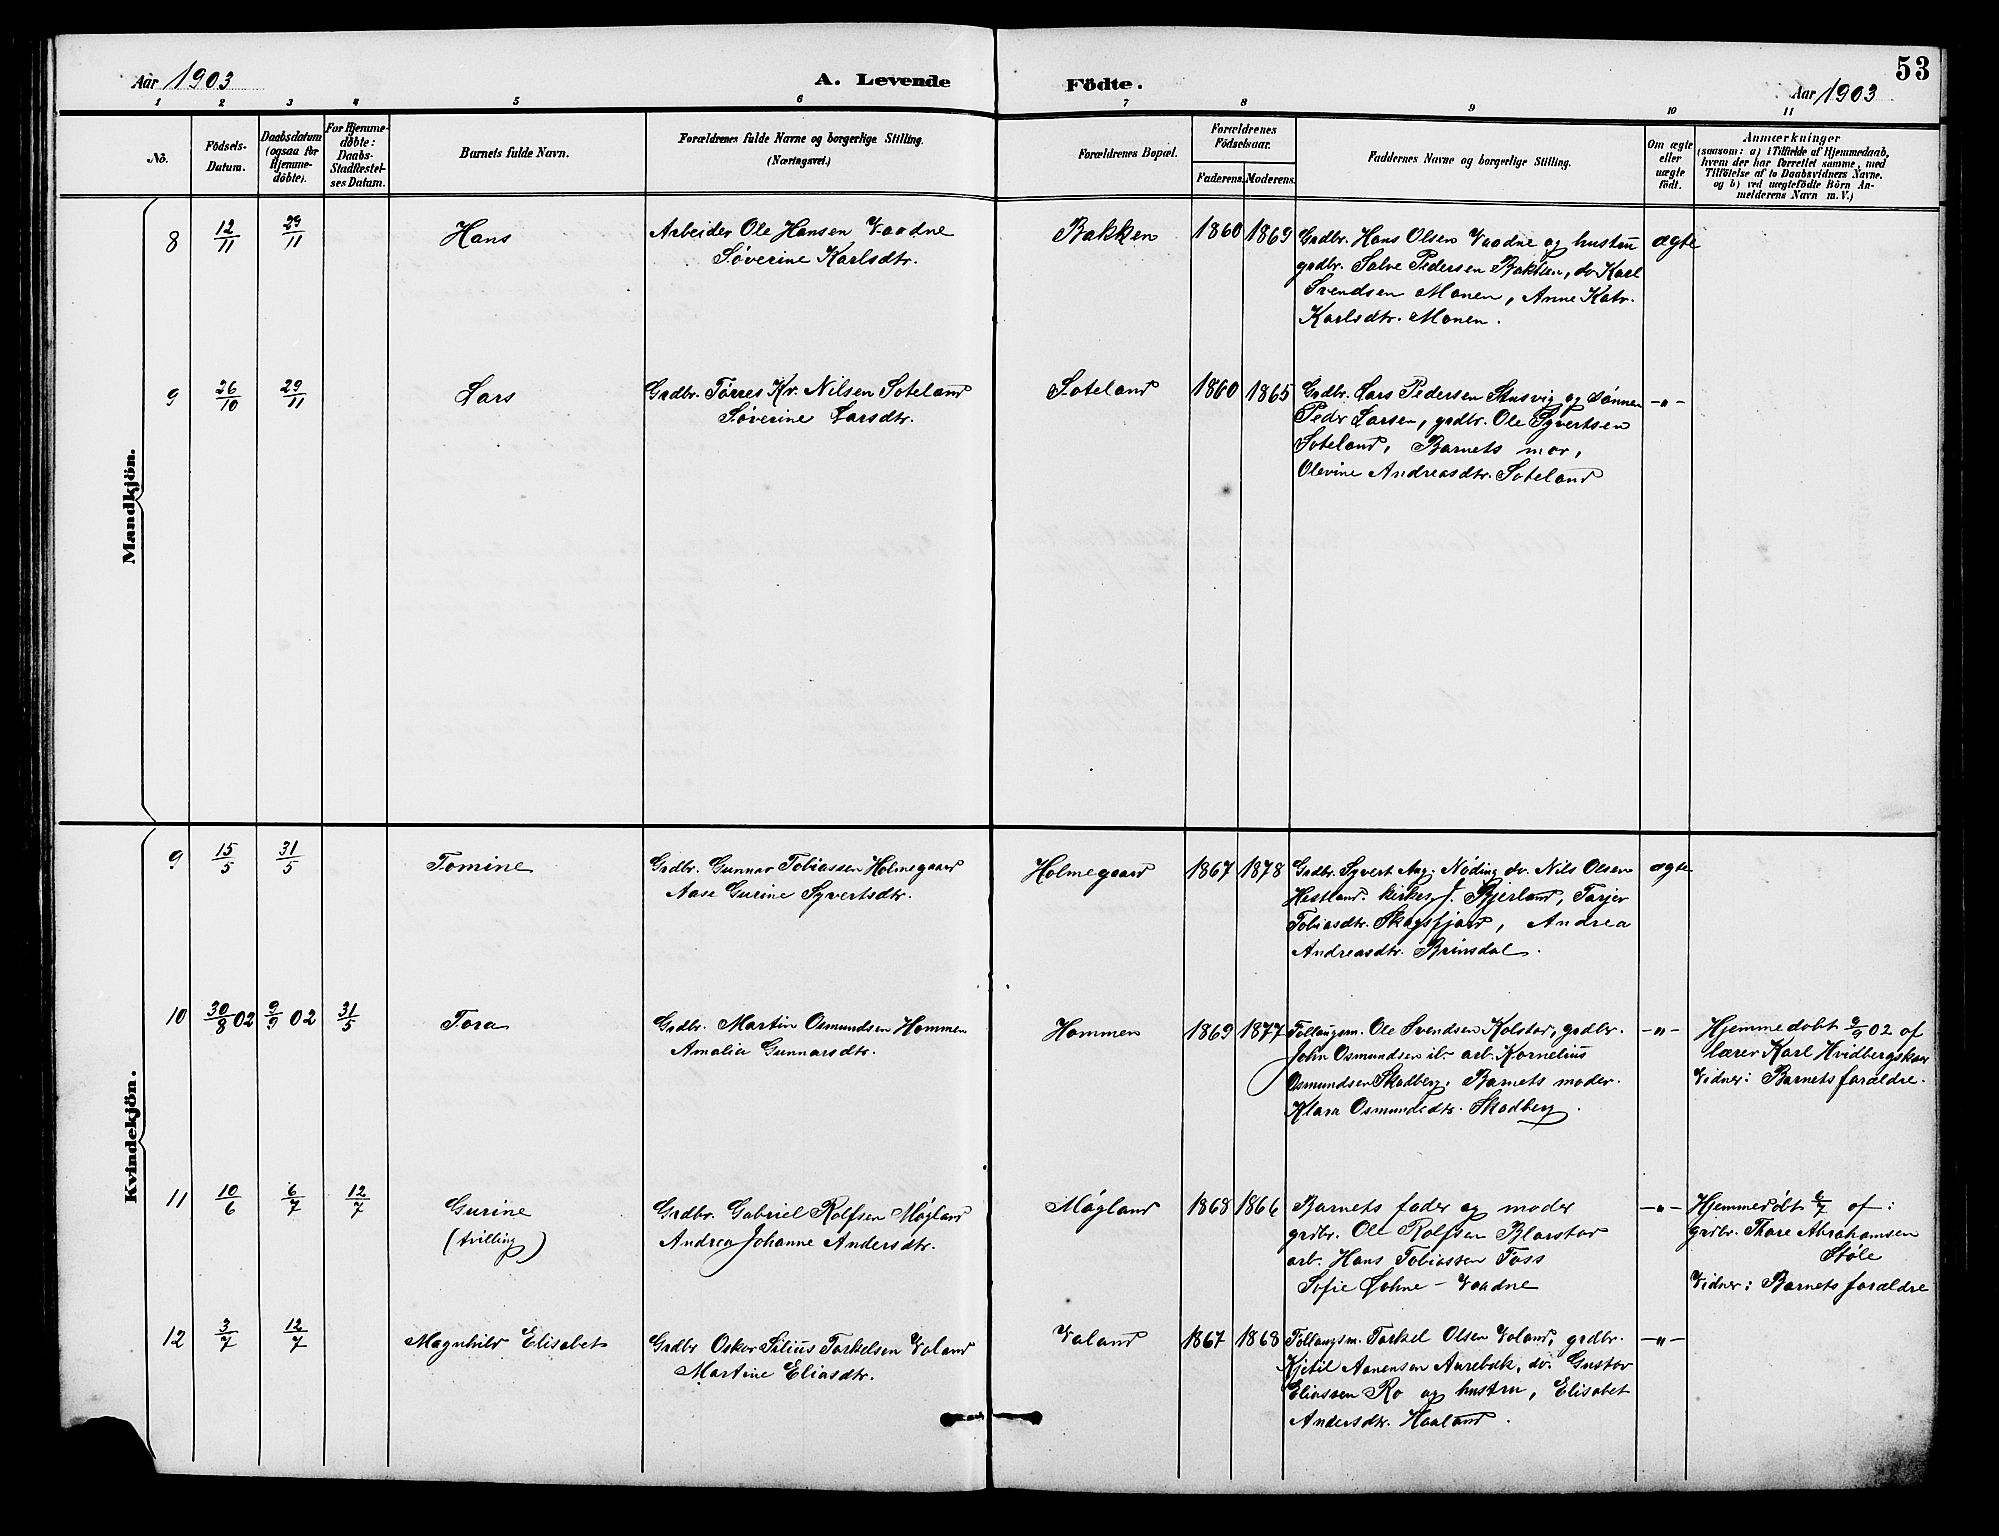 53
Aar 1903
A. Levende Födte.
Aar 1903
1 2 3 4 5 6 7 8 9 10 11
No.
Födsels-
Datum.
Daabsdatum
(ogsaa for
Hjemme-
döbte).
For Hjemme-
döbte:
Daabs-
Stadfæstel-
ses Datum.
Barnets fulde Navn.
Forældrenes fulde Navne og borgerlige Stilling.
(Næringsvei.)
Forældrenes Bopæl.
Forældrenes
Födselsaar.
Faderens. Moderens.
Faddernes Navne og borgerlige Stilling.
Om ægte
eller
uægte
födt.
Anmærkninger
(saasom: a) i Tilfælde af Hjemmedaab,
hvem der har forrettet samme, med
Tilföielse af to Daabsvidners Navne.
og b) ved uægtefödte Börn An-
melderens Navn m. V.)
Mandkjön.
8 12/11 29/11 Hans
Arbeider Ole Hansen Vaadne
Søverine Karlsdtr.
Bakken 1860 1869
Grdbr. Hans Olsen Vaadne og hustru
grdbr. Salve Pedersen Bakken, do Karl
Svendsen Monen, Anne Katr.
Karlsdtr. Monen.
ægte
9 26/10 29/11 Lars
Grdbr. Tørres Kr. Nilsen Soteland
Søverine Larsdtr.
Soteland 1860 1865
Grdbr. Lars Pedersen og sønnen
Peder Larsen, grdbr. Ole Syvertsen
Soteland, Barnets mor,
Olevine Andreasdtr. Soteland
-"-
Kvindekjön.
9 15/5 31/5 Tomine
Grdbr. Gunnar Tobiassen Holmegaard
Aase Gurine Syvertsdtr.
Holmegaard 1867 1878
Grdbr. Syvert Aug. Nøding do. Nils Olsen
Hestland. kirkes. f. Bjerland, Tarjer
Tobiasdtr. Skogsfjord, Andrea
Andreasdtr. Brinsdal.
ægte
10 30/8 02 9/9 02 31/5 Tora
Grdbr. Martin Osmundsen Hommen
Amalia Gunnarsdtr.
Hommen 1869 1877
Toldungsm. Ole Svendsen Kolstad, grdbr.
John Osmundsen ib. arb. Kornelius
Osmundsen Skadberg, Barnets moder.
Klara Osmundsdtr. Skadberg.
-"-
Hjemmedøbt 9/9 02 af
lærer Karl Hvidbergskaar
Vidner: Barnets forældre.
11 10/6 6/7 12/7 Gurine
(tvilling)
Grdbr. Gabriel Rolfsen Møgland
Andrea Johanne Andersdtr.
Møgland 1868 1866
Barnets fader og moder
grdbr. Ole Rolfsen Blørstad
arb. Hans Tobiassen Foss
Sofie Øhne - Vaadne
-"-
Hjemmedøbt 6/7 af:
grdbr. Thore Abrahamsen
Støle
Vidner: Barnets forældre
12 3/7 12/7 Magnhild Elisabet
Grdbr Oskar Silius Torkelsen Valand
Martine Eliasdtr.
Valand 1867 1868
Follaugsm. Torkel Olsen Valand, grdbr.
Kjetil Aanensen Aurebæk, do. Gustav
Eliassen Ro og hustru, Elisabet
Andersdtr. Haaland.
-"-